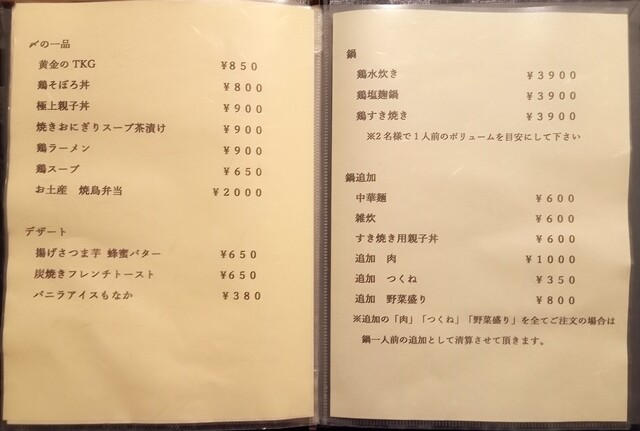 〆の一品
黄金のTKG ¥850
鶏そぼろ丼 ¥800
極上親子丼 ¥900
焼きおにぎりスープ茶漬け ¥900
鶏ラーメン ¥900
鶏スープ ¥650
お土産 焼鳥弁当 ¥2000
デザート
揚げさつま芋 蜂蜜バター ¥650
炭焼きフレンチトースト ¥650
バニラアイスもなか ¥380
鍋
鶏水炊き ¥3900
鶏塩麹鍋 ¥3900
鶏すき焼き ¥3900
※2名様で1人前のボリュームを目安にして下さい
鍋追加
中華麺 ¥600
雑炊 ¥600
すき焼き用親子丼 ¥600
追加 肉 ¥1000
追加 つくね ¥350
追加 野菜盛り ¥800
※追加の「肉」「つくね」「野菜盛り」を全てご注文の場合は
鍋一人前の追加として清算させて頂きます。